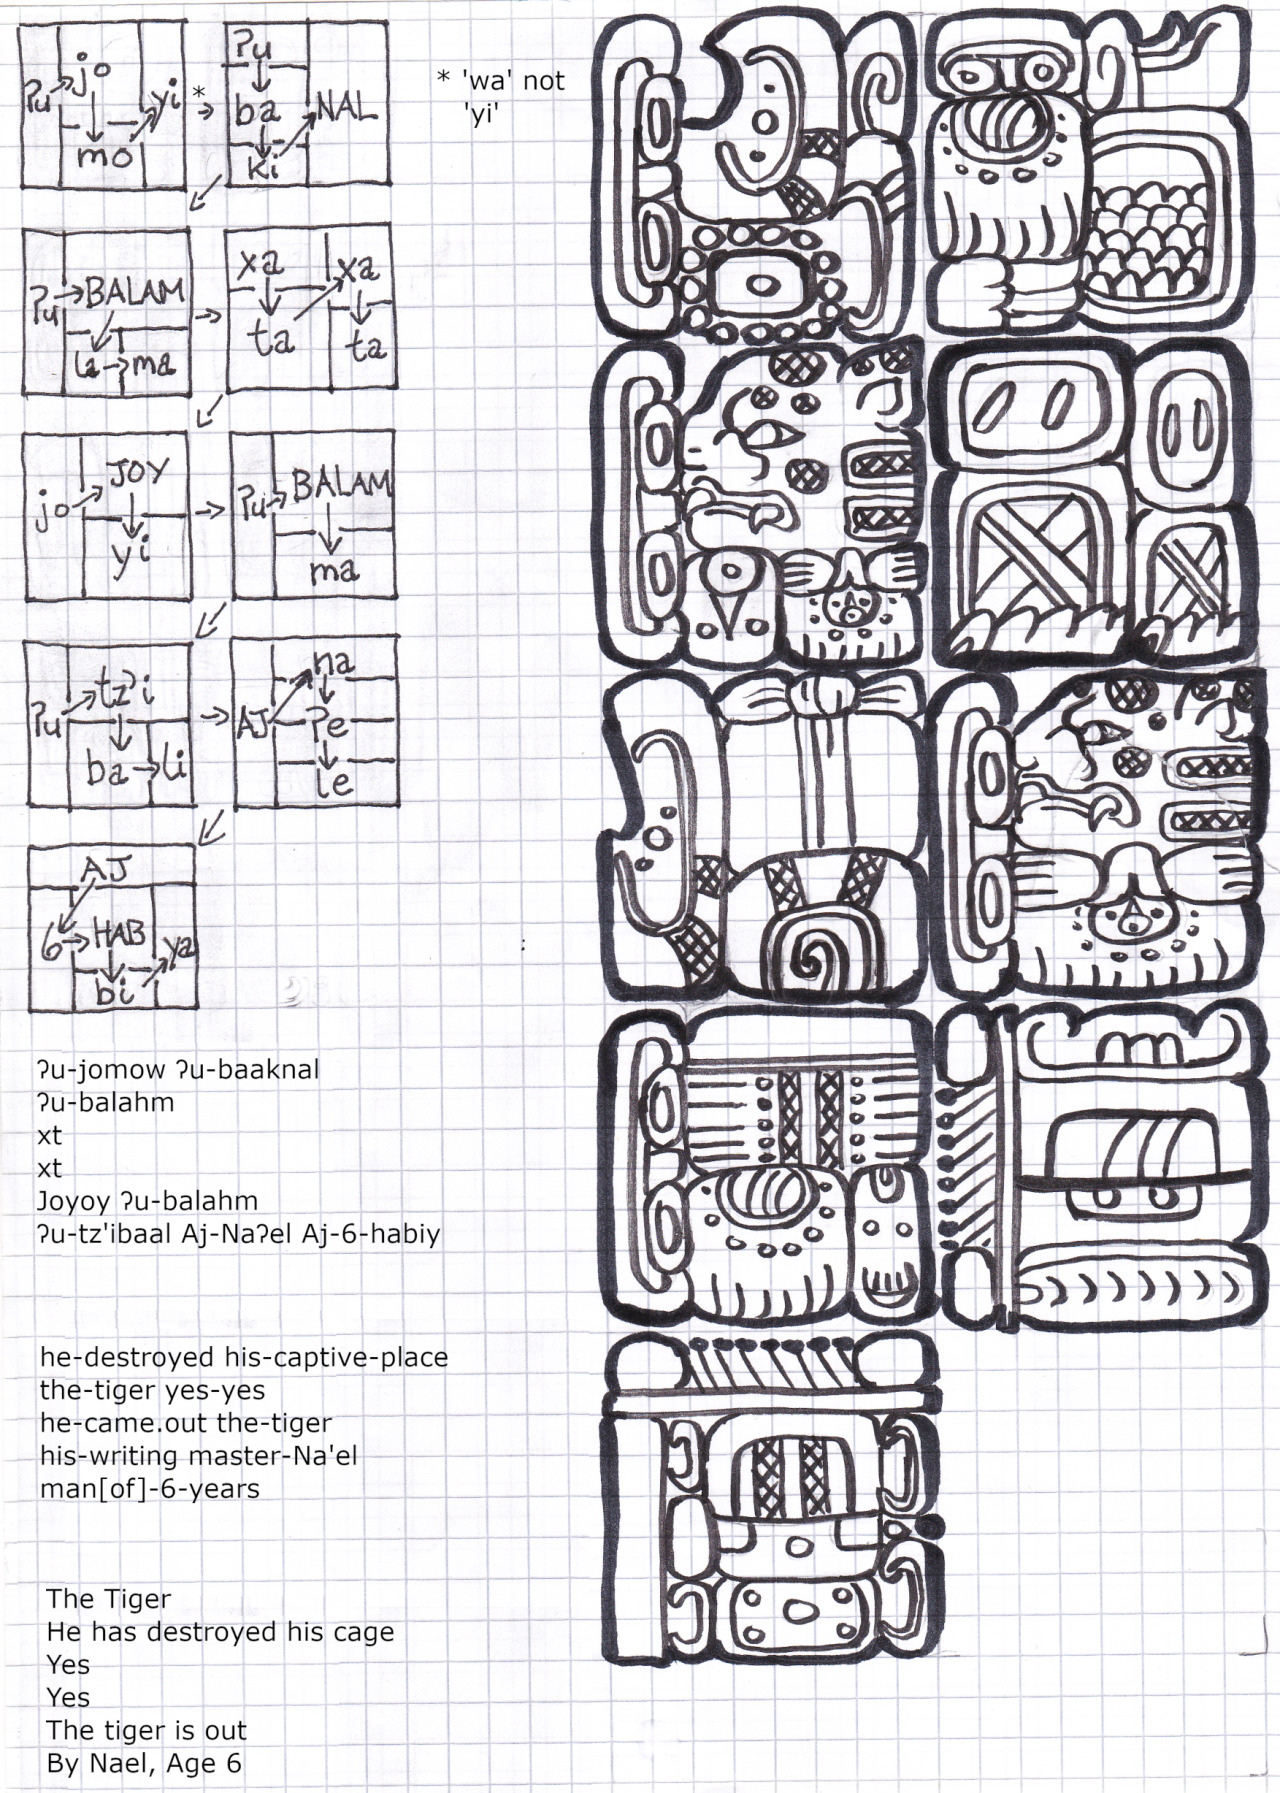 ʔu jo mo yi *
ʔu ba ki NAL
* 'wa' not
'yi'
ʔu BALAM la ma
xa ta xa ta
jo JOY yi
ʔu BALAM ma
ʔu tz'i ba li
AJ na ʔe le
AJ 6 HAB bi ya
ʔu-jomow ʔu-baaknal
ʔu-balahm
xt
xt
Joyoy ʔu-balahm
ʔu-tz'ibaal Aj-Naʔel Aj-6-habiy
he-destroyed his-captive-place
the-tiger yes-yes
he-came.out the-tiger
his-writing master-Na'el
man[of]-6-years
The Tiger
He has destroyed his cage
Yes
Yes
The tiger is out
By Nael, Age 6